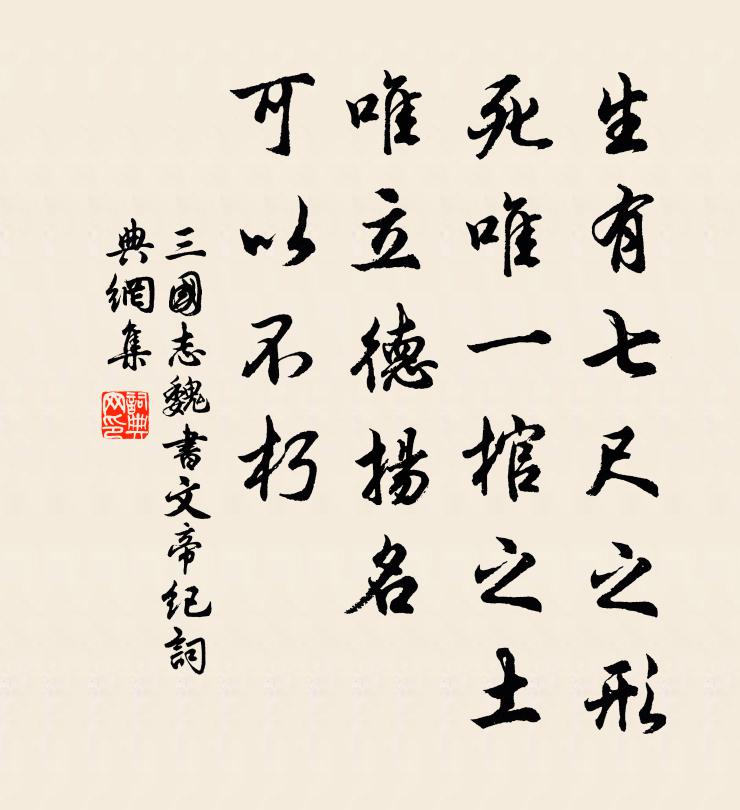 生有七尺之形
死唯一棺之土
唯立德揚名
可以不朽
三國志魏書文帝紀詞
典網集
詞典
网印